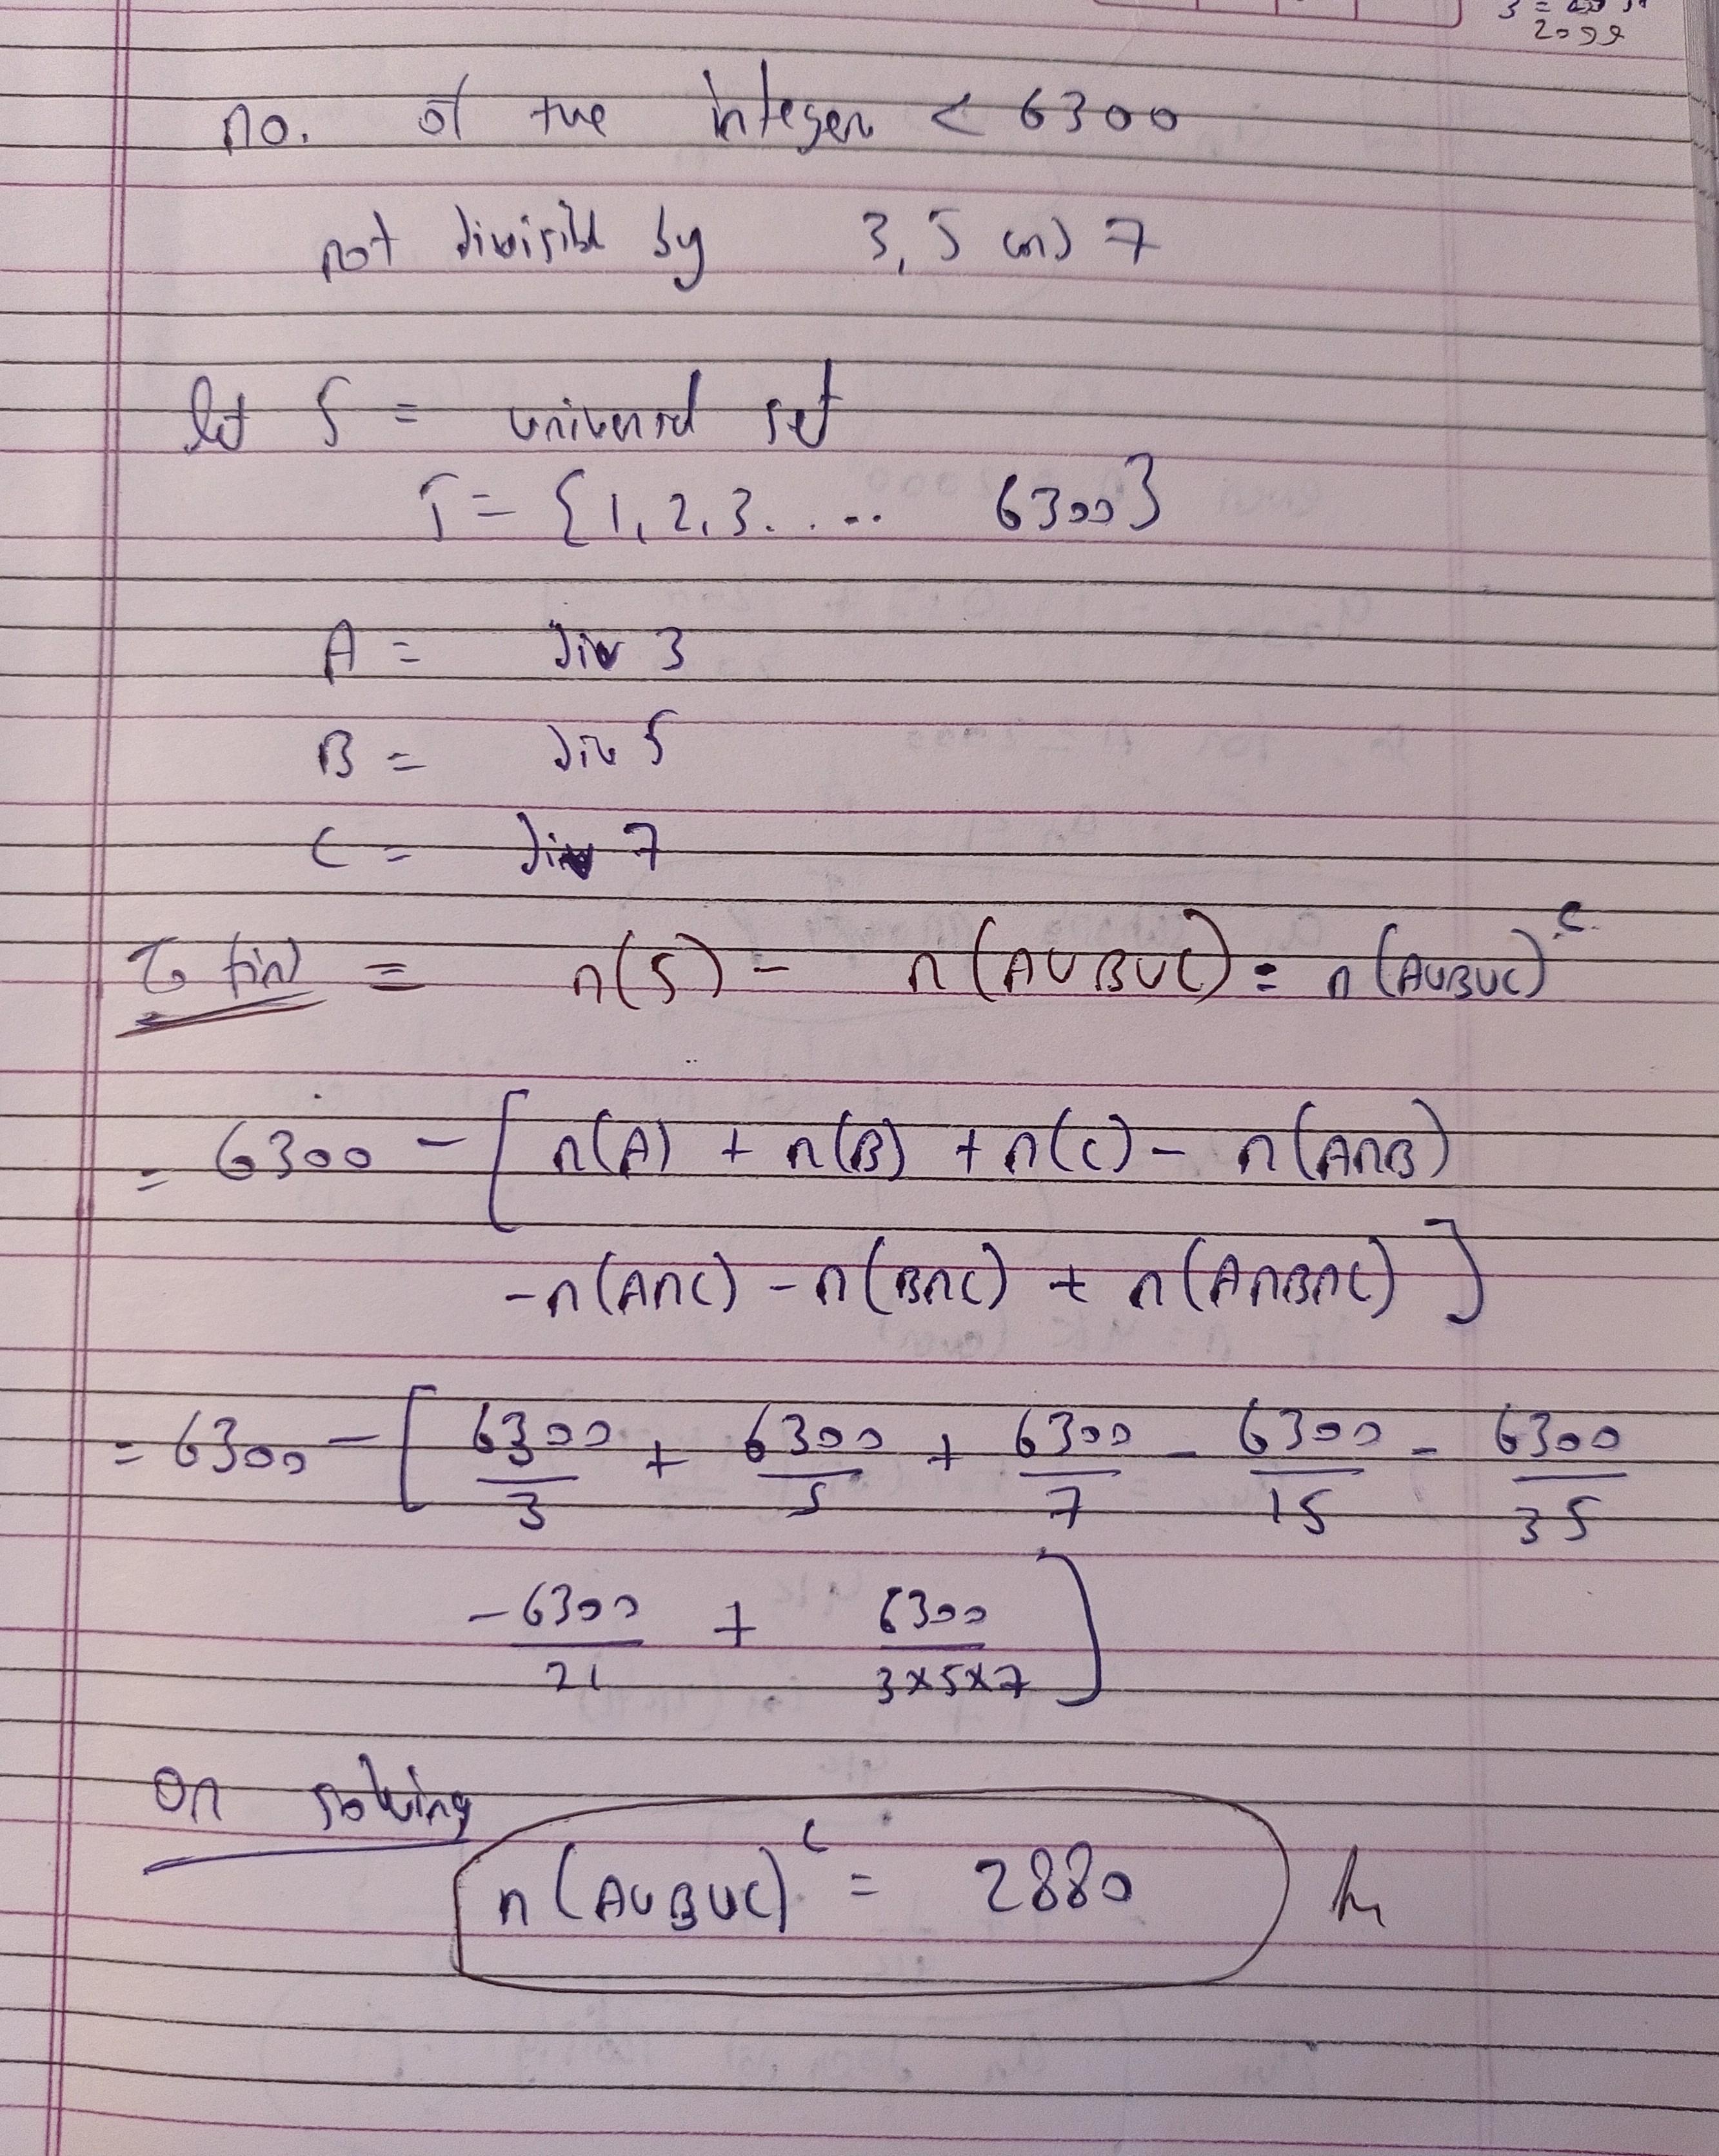 2099
no. of +ve integer < 6300
not divisible by 3, 5 and 7
let S = universal set
S = {1, 2, 3. . . .. 6300}
A = div 3
B = div 5
C = div 7
To find = n(S) - n(A∪B∪C) = n(A∪B∪C)ᶜ
= 6300 - [ n(A) + n(B) + n(C) - n(A∩B)
- n(A∩C) - n(B∩C) + n(A∩B∩C) ]
= 6300 - [ 6300/3 + 6300/5 + 6300/7 - 6300/15 - 6300/35
- 6300/21 + 6300/3×5×7 ]
on solving
n(A∪B∪C)ᶜ = 2880